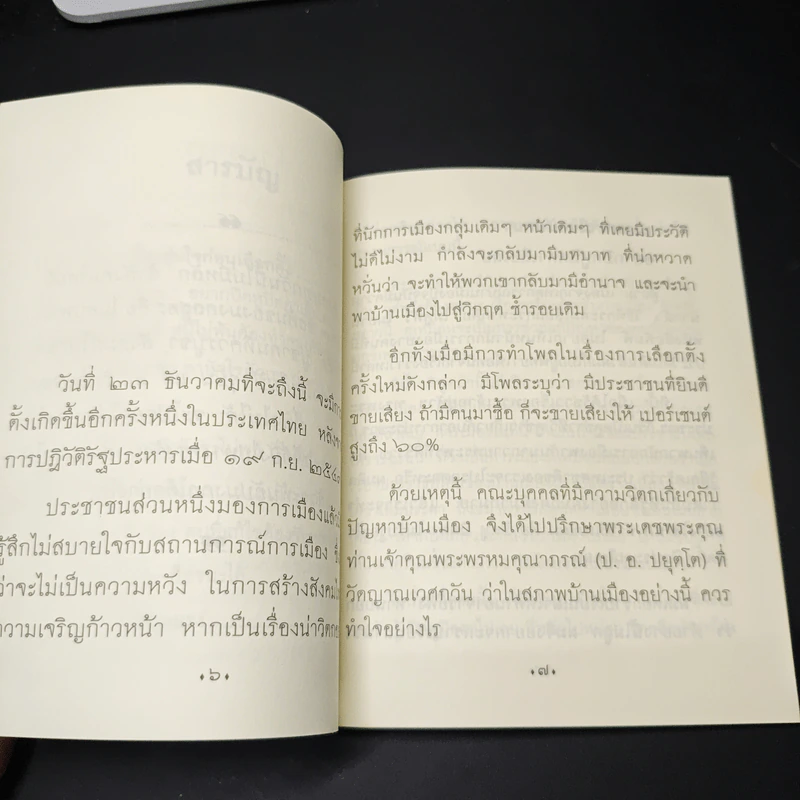 วันที่ ๒๓ ธันวาคมที่จะถึงนี้ จะมีการ
ตั้งเกิดขึ้นอีกครั้งหนึ่งในประเทศไทย
การปฏิวัติรัฐประหารเมื่อ ๑๙ ก.ย.
ประชาชนส่วนหนึ่งมองการเมืองแล้ว
รู้สึกไม่สบายใจกับสถานการณ์การเมือง
ว่าจะไม่เป็นความหวัง ในการสร้าง
ความเจริญก้าวหน้า หากเป็นเรื่องน่าวิตก
๖
ที่นักการเมืองกลุ่มเดิมๆ หน้าเดิมๆ ที่เคยมีประวัติ
ไม่ดีไม่งาม กำลังจะกลับมามีบทบาท ที่น่าหวาด
หวั่นว่า จะทำให้พวกเขากลับมามีอำนาจ และจะนำ
พาบ้านเมืองไปสู่วิกฤต ซ้ำรอยเดิม
อีกทั้งเมื่อมีการทำโพลในเรื่องการเลือกตั้ง
ครั้งใหม่ดังกล่าว มีโพลระบุว่า มีประชาชนที่ยินดี
ขายเสียง ถ้ามีคนมาซื้อ ก็จะขายเสียงให้ เปอร์เซนต์
สูงถึง ๖๐%
ด้วยเหตุนี้ คณะบุคคลที่มีความวิตกเกี่ยวกับ
ปัญหาบ้านเมือง จึงได้ไปปรึกษาพระเดชพระคุณ
ท่านเจ้าคุณพระพรหมคุณาภรณ์ (ป. อ. ปยุตฺโต) ที่
วัดญาณเวศกวัน ว่าในสภาพบ้านเมืองอย่างนี้ ควร
ทำใจอย่างไร
๗